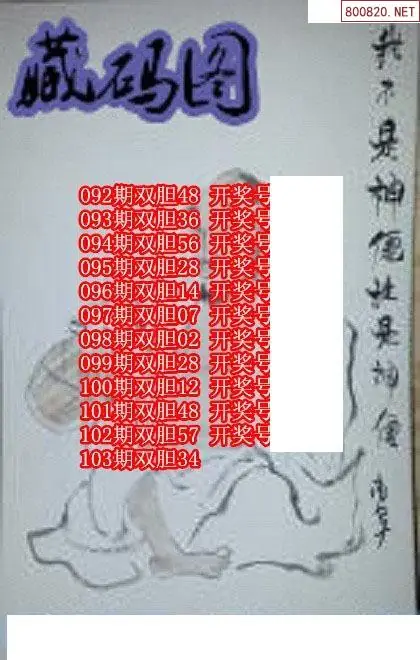 800820.NET
藏码图
092期双胆48 开奖号
093期双胆36 开奖号
094期双胆56 开奖号
095期双胆28 开奖号
096期双胆14 开奖号
097期双胆07 开奖号
098期双胆02 开奖号
099期双胆28 开奖号
100期双胆12 开奖号
101期双胆48 开奖号
102期双胆57 开奖号
103期双胆34
我不是神僊社是神僊